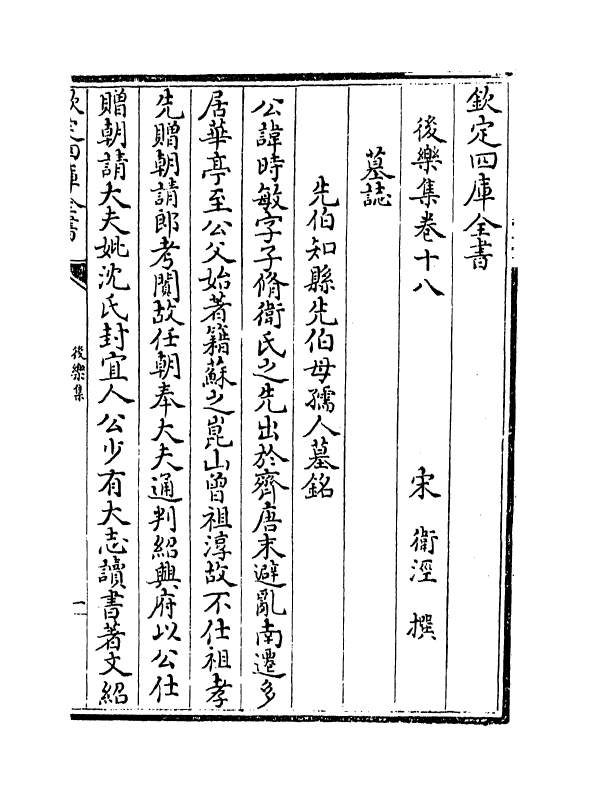 欽定四庫全書
後樂集卷十八
宋 衛涇 撰
墓誌
先伯知縣先伯母孺人墓銘
公諱時敏字子脩衛氏之先出於齊唐末避亂南遷多
居華亭至公父始著籍蘇之崑山曾祖淳故不仕祖孝
先贈朝請郎考闐故任朝奉大夫通判紹興府以公仕
贈朝請大夫妣沈氏封宜人公少有大志讀書著文紹
欽定四庫全書
後樂集
一